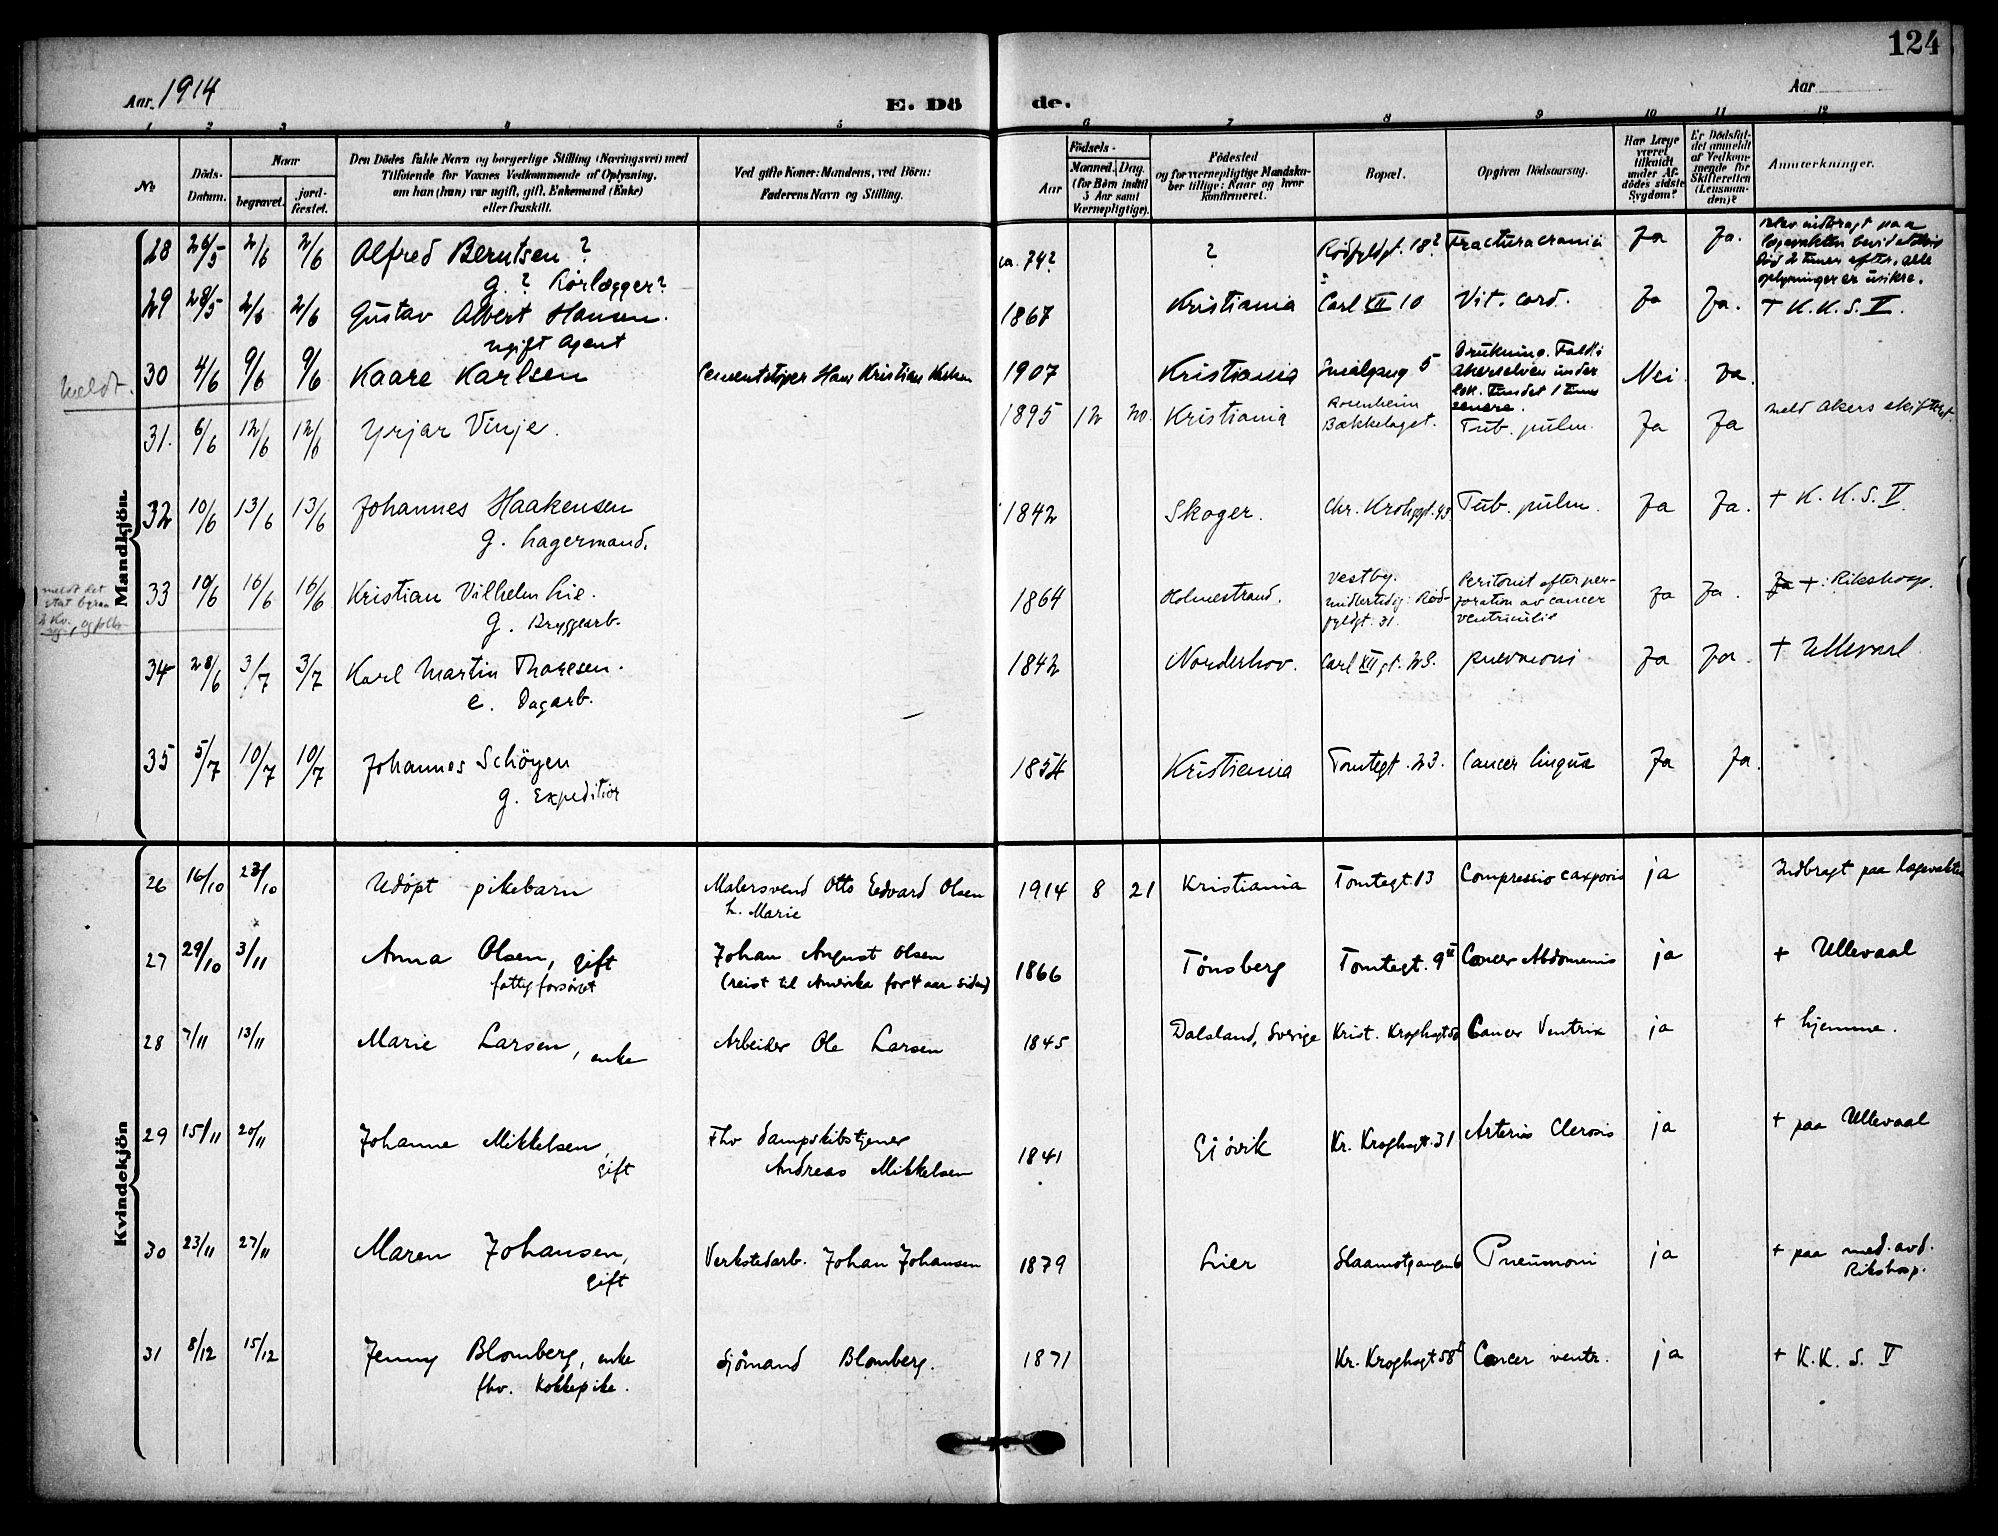 124
Aar 1914
E. Dö
de.
Aar
1 2 3 4 5 6 7 8 9 10 11 12
No
Döds-Datum.
Naar
begravet.
jord-fæstet.
Den Dödes fulde Navn og borgerlige Stilling (Næringsvei) med
Tilföiende for Voxnes Vedkommende af Oplysning,
om han (hun) var ugift, gift, Enkemand (Enke)
eller fraskilt.
Ved gifte Koner: Mandens, ved Börn:
Faderens Navn og Stilling.
Födsels-
Aar
Maaned. Dag.
(for Börn indtil
5 Aar samt
Værnepligtige).
Födested
og for værnepligtige Mandskaber tillige: Naar og hvor
konfirmeret.
Bopæl.
Opgiven Dödsaarsag.
Har Læge
været
tilkaldt
under Afdödes sidste
Sygdom?
Er Dödsfaldet anmeldt
af Vedkommende for
Skifteretten
(Lensmanden)?
Anmerkninger.
Mandkjön.
28 26/5 2/6 2/6 Alfred Berntsen ? ca. 74? ? Rødfyldgt. 18? Fractura cranii Ja Ja. Blev indbragt paa
g. ? Rørlægger? lægevakten bevidstløs
død 2 timer efter, alle
oplysninger er usikre.
29 28/5 2/6 2/6 Gustav Albert Hansen. 1867 Kristiania Carl XII 10 Vit. cord. Ja Ja. + K. K. S. V.
ugift Agent
Meldt. 30 4/6 9/6 9/6 Kaare Karlsen Cementstøper Hans Kristian Karlsen 1907 Kristiania Smalgang 5 Drukning. Fald i
Akerselven under
lek. Fundet 1 time
senere. Nei. Ja.
31. 6/6 12/6 12/6 Yrjar Vinje. 1895 12 20. Kristiania Rosenheim
Bækkelaget. Tub. pulm. Ja Ja meld Akers skifteret
32 10/6 13/6 13/6 Johannes Haakensen 1842 Skoger. Chr. Krohgsgt. 93 Tub. pulm. Ja Ja. + K. K. S. V.
g. Lagermand.
meldt det
stat byraa
33 10/6 16/6 16/6 Kristian Vilhelm Lie. 1864 Holmestrand. Vestby.
midlertidig: Rødfyldgt. 31. Peritonit efter perforation av cancer
ventriculi Ja Ja. Ja +: Rikshosp.
g. Bryggearb.
34 28/6 3/7 3/7 Karl Martin Thoresen. 1842 Norderhov. Carl XII gt. 28. pneumoni Ja Ja. + Ullevaal.
e. Dagarb.
35 5/7 10/7 10/7 Johannes Schöyen 1854 Kristiania Tomtegt. 23. Cancer linguæ Ja Ja.
g. Expeditiør
Kvindekjön
26 16/10 23/10 Udøpt pikebarn Malersvend Otto Edvard Olsen 1914 8 21 Kristiania Tomtegt. 13 Compressio corporis ja Indbragt paa lægevakten
h. Marie
27 29/10 3/11 Anna Olsen, gift Johan August Olsen 1866 Tönsberg Tomtegt. 9 II Cancer Abdomenis ja + Ullevaal
fattigforsørget (reist til Amerika for 4 aar siden)
28 7/11 13/11 Marie Larsen, enke Arbeider Ole Larsen 1845 Dalsland, Sverige Krist. Kroghsgt 50 Cancer Ventrix ja + hjemme.
29 15/11 20/11 Johanne Mikkelsen, gift Fhv dampskibstjener 1841 Gjövik Kr. Kroghsgt. 31 Arterius Clerosis ja + paa Ullevaal
Andreas Mikkelsen
30 23/11 27/11 Maren Johansen, gift Verkstedarb. Johan Johansen 1879 Lier Slaamotgangen 6 Pneumoni ja + paa med. avd.
Rikshosp.
31 8/12 15/12 Jenny Blomberg, enke Sjömand Blomberg. 1871 Kr. Kroghsgt 58 Cancer ventr. ja + K. K. S. V
fhv. Kokkepike.